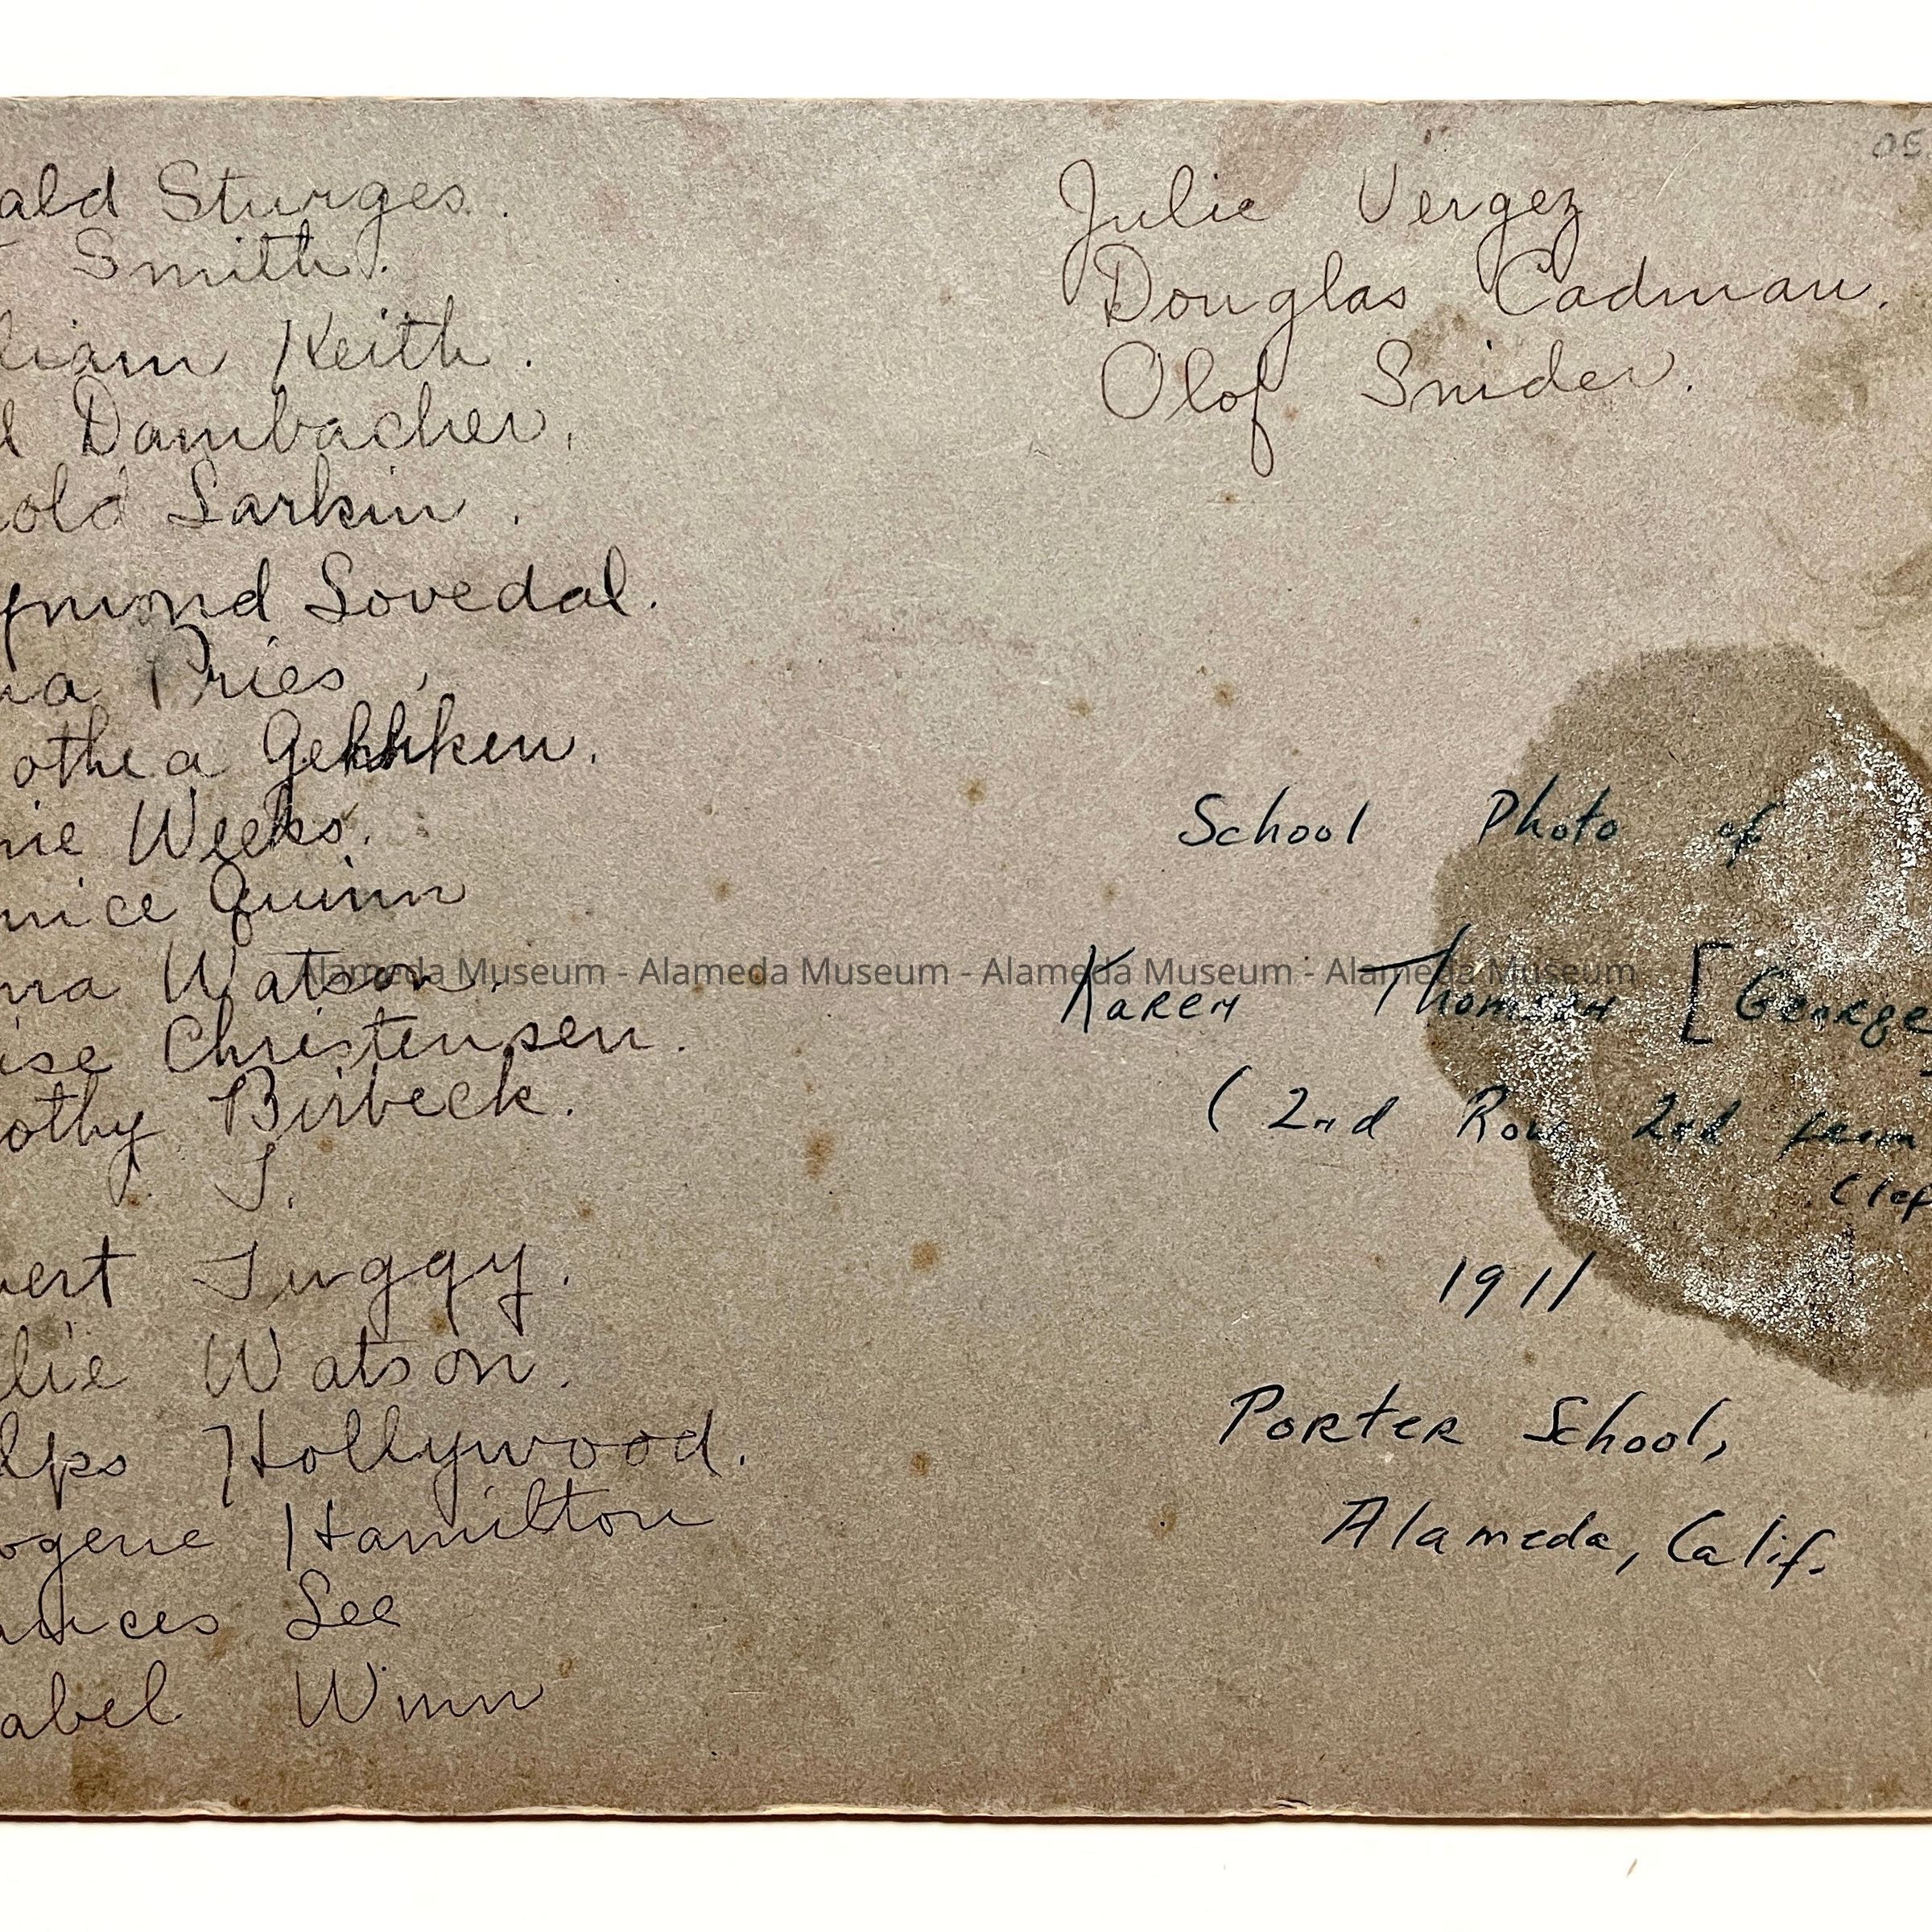 ald Sturges.
Smith.
liam Keith.
d Dambacher.
old Larkin.
ymond Lovedal.
na Pries,
othea Gehhken.
nie Weeks.
nice Quinn
ma Watson.
ise Christensen.
othy Birbeck.
J.
bert Tuggy.
lie Watson.
lps Hollywood.
ogene Hamilton
ances Lee
abel Winn
Julie Vergez
Douglas Cadman.
Olof Snider.
05
School Photo of
Karen Thomsen [George
(2nd Row 2nd from
(lef
1911
Porter School,
Alameda, Calif.
Alameda Museum - Alameda Museum - Alameda Museum - Alameda Museum